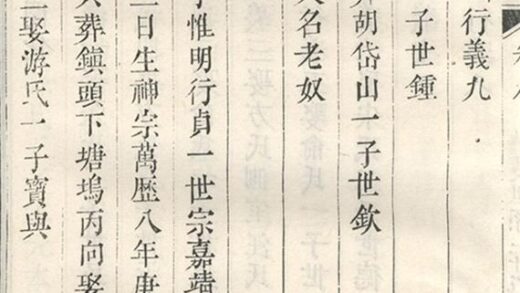 行義九
子世鍾
胡岱山一子世欽
名老奴
惟明行貞一世宗嘉靖
日生神宗萬歷八年庚
葬鎮頭下塘塢丙向娶
娶游氏一子寶與